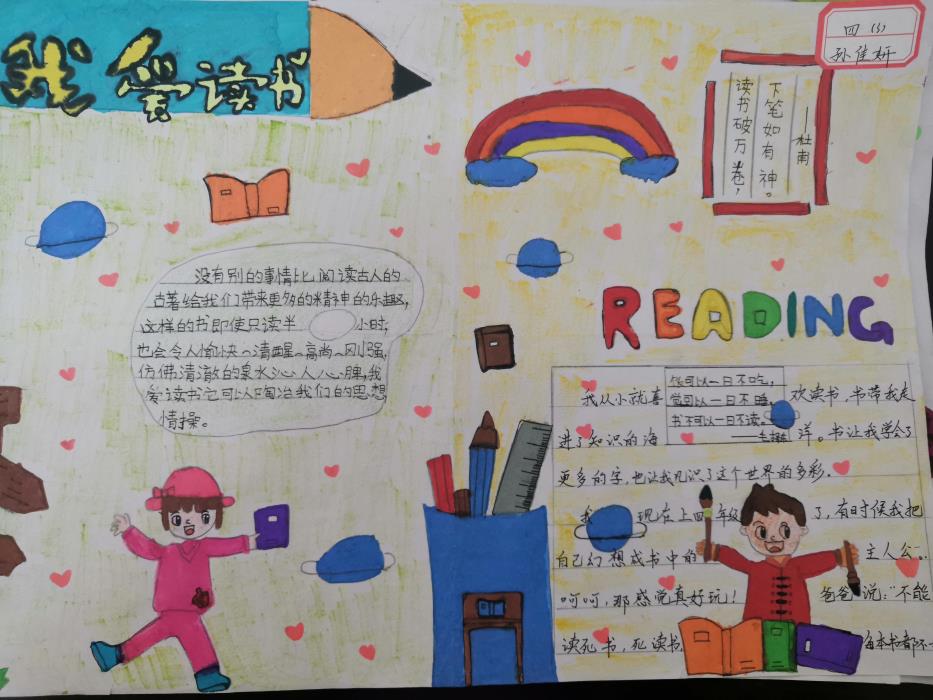 我爱读书
四（3）
孙佳妍
读书破万卷，
下笔如有神。
——杜甫
没有别的事情比阅读古人的
古著给我们带来更多的精神的乐趣，
这样的书即使只读半 小时，
也会令人愉快、清醒、高尚、刚强，
仿佛清澈的泉水沁人心脾，我
爱读书它可以陶冶我们的思想
情操。
READING
饭可以一日不吃，
觉可以一日不睡，
书不可以一日不读。
我从小就喜 欢读书，书带我走
进了知识的海 洋。书让我学会了
更多的字，也让我见识了这个世界的多彩。
我 现在上四年级 了，有时候我把
自己幻想成书中的 主人公...
呵呵，那感觉真好玩！ 爸爸 说："不能
读死书，死读书 每本书都不一